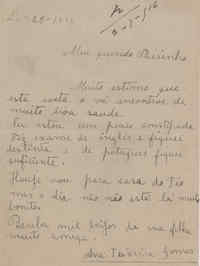 Meu querido Paisinho
Muito estimo que
esta carta o vá encontrar de
muito boa saude.
Eu estou um pouco constipada
Fiz exame de inglês e fiquei
distinta e de portugues fiquei
suficiente.
Hoje vou para casa do Tio
mas o dia não está lá muito
bonito.
Receba mil beijos da sua filha
muito amiga
Ana Teixeira Gomes